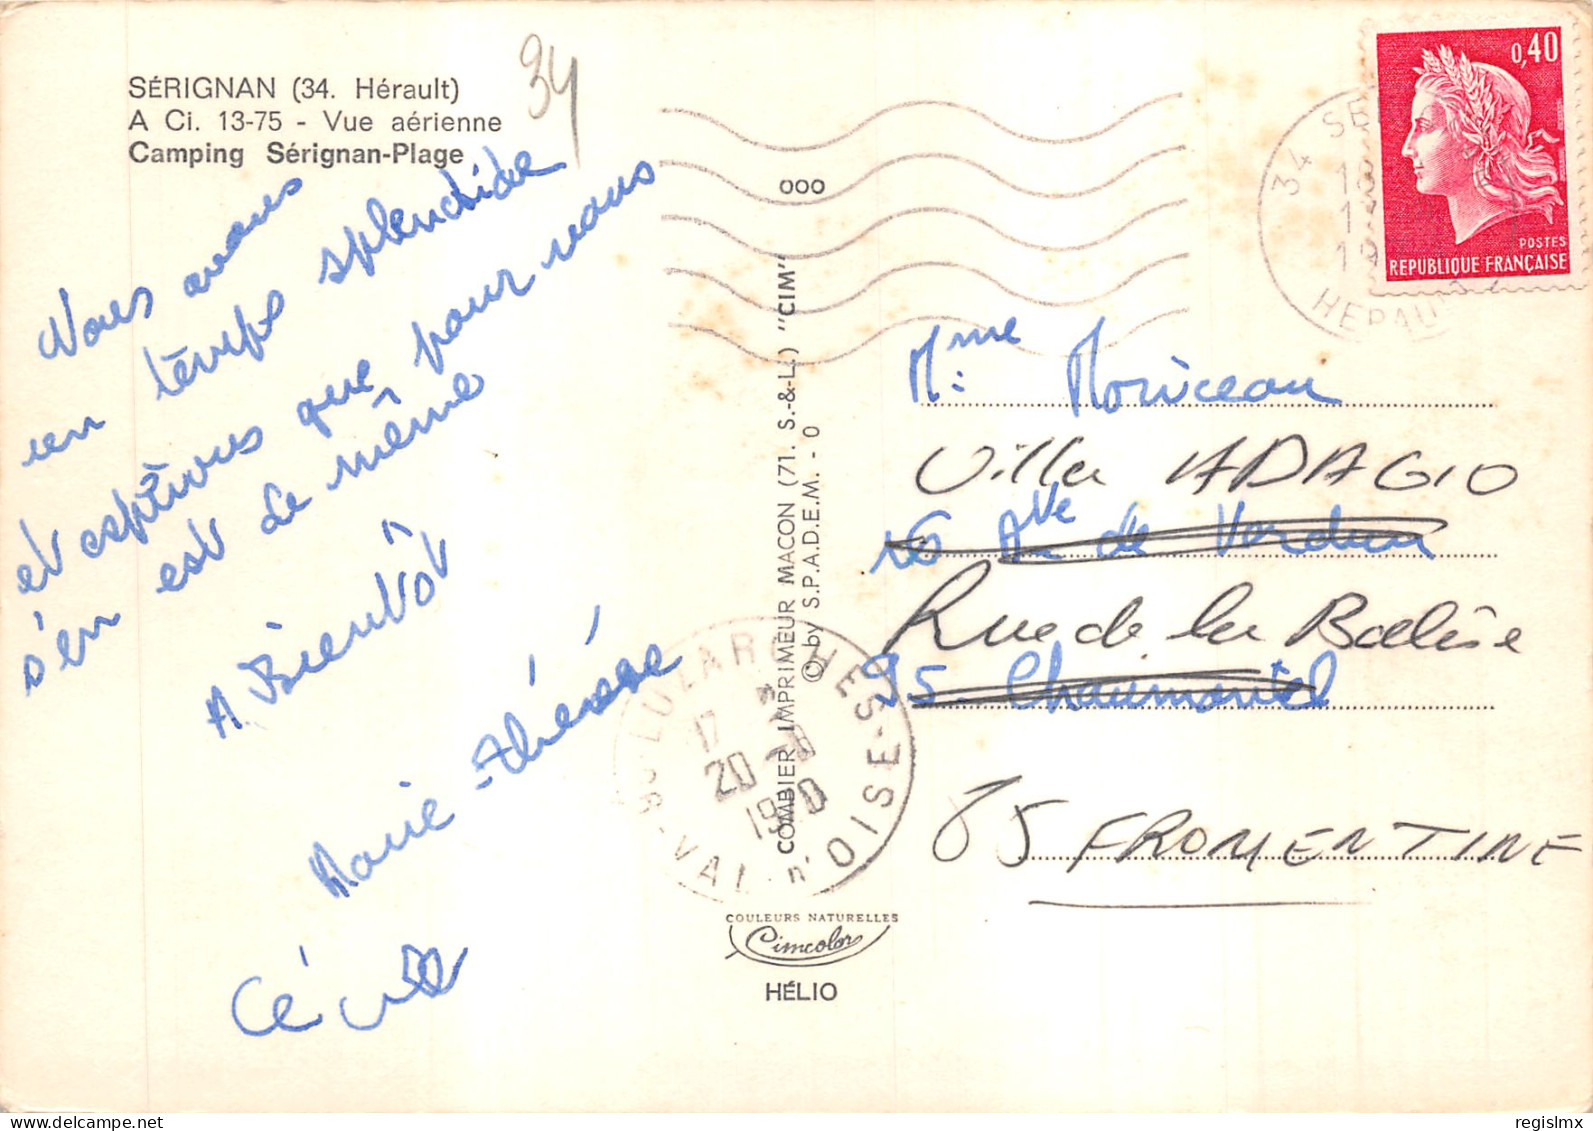 SÉRIGNAN (34. Hérault)
A Ci. 13-75 - Vue aérienne
Camping Sérignan-Plage
34
Nous avons
un temps splendide
et espérons que pour vous
s'en est de même
A Bientôt
Marie-Thérèse
Cécile
000
COMBIER IMPRIMEUR MACON (71. S.-&-L.) "CIM"
© by S.P.A.D.E.M. - 0
COULEURS NATURELLES
Cimcolor
HÉLIO
95 LUZARCHES
17
20-8
1970
VAL D'OISE
0,40
POSTES
REPUBLIQUE FRANÇAISE
34
18
HERAULT
Mme Moriceau
Villa ADAGIO
16 Ave de Verdun
Rue de la Balise
95 - Chaumontel
85 FROMENTINE
regislmx